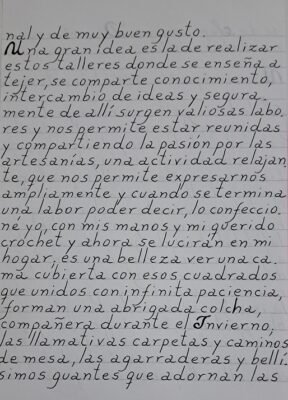 nal y de muy buen gusto.
Una gran idea es la de realizar
estos talleres donde se enseña a
tejer, se comparte conocimiento,
intercambio de ideas y segura_
mente de allí surgen valiosas labo
res y nos permite estar reunidas
y compartiendo la pasión por las
artesanías, una actividad relajan
te, que nos permite expresarnos
ampliamente y cuando se termina
una labor poder decir, lo confeccio_
né yo, con mis manos y mi querido
crochet y ahora se lucirán en mi
hogar, es una belleza ver una ca_
ma cubierta con esos cuadrados
que unidos con infinita paciencia,
forman una abrigada colcha,
compañera durante el Invierno,
las llamativas carpetas y caminos
de mesa, las agarraderas y bellí_
simos guantes que adornan las